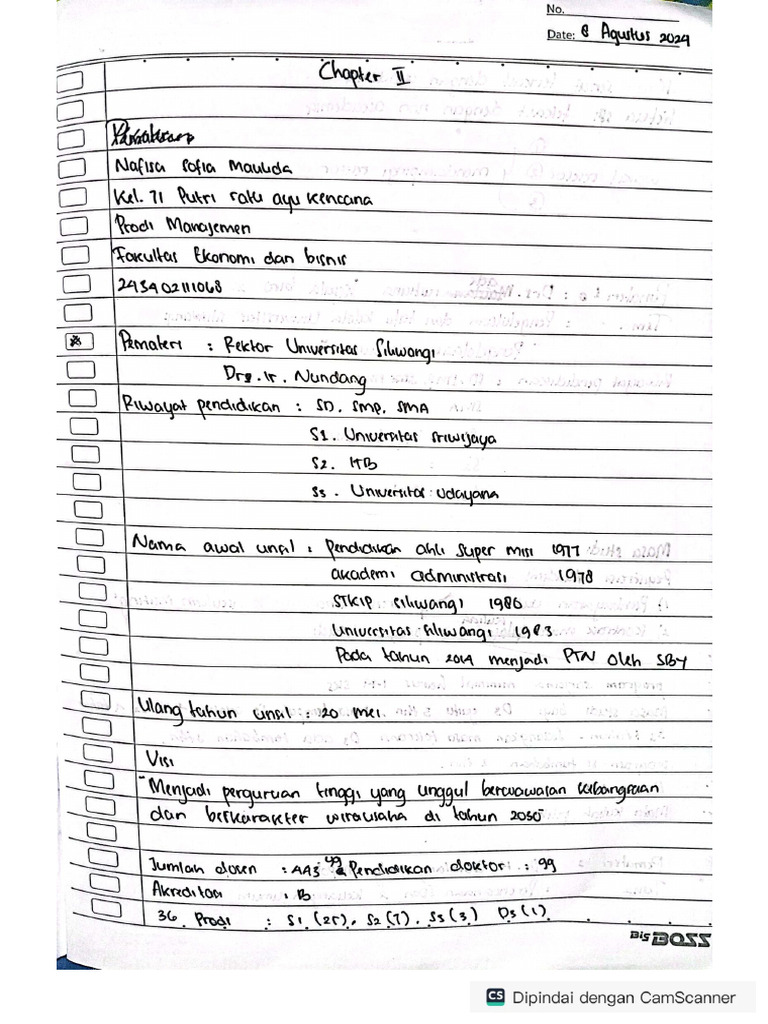 No.
Date: 8 Agustus 2024
Chapter II
Nafisa Sofia Maulida
Kel. 71 Putri ratu ayu kencana
Prodi Manajemen
Fakultas Ekonomi dan bisnis
243402111068
Pemateri : Rektor Universitas Siliwangi
Ir. Nundang
Riwayat pendidikan : SD, SMP, SMA
S1. Universitas Sriwijaya
S2. ITB
S3. Universitas Udayana
Nama awal unsil : Pendidikan ahli super misi 1977
akademi administrasi 1978
STKIP siliwangi 1980
Universitas siliwangi 1983
Pada tahun 2014 menjadi PTN oleh SBY
Ulang tahun unsil : 20 mei
Visi
"Menjadi perguruan tinggi yang unggul berwawasan kebangsaan
dan berkarakter wirausaha di tahun 2050
Jumlah dosen : Pendidikan doktor : 99
Akreditasi : B
36 Prodi : S1 (25), S2 (7), S3 (3) D3 (1)
Big BOSS
CS Dipindai dengan CamScanner